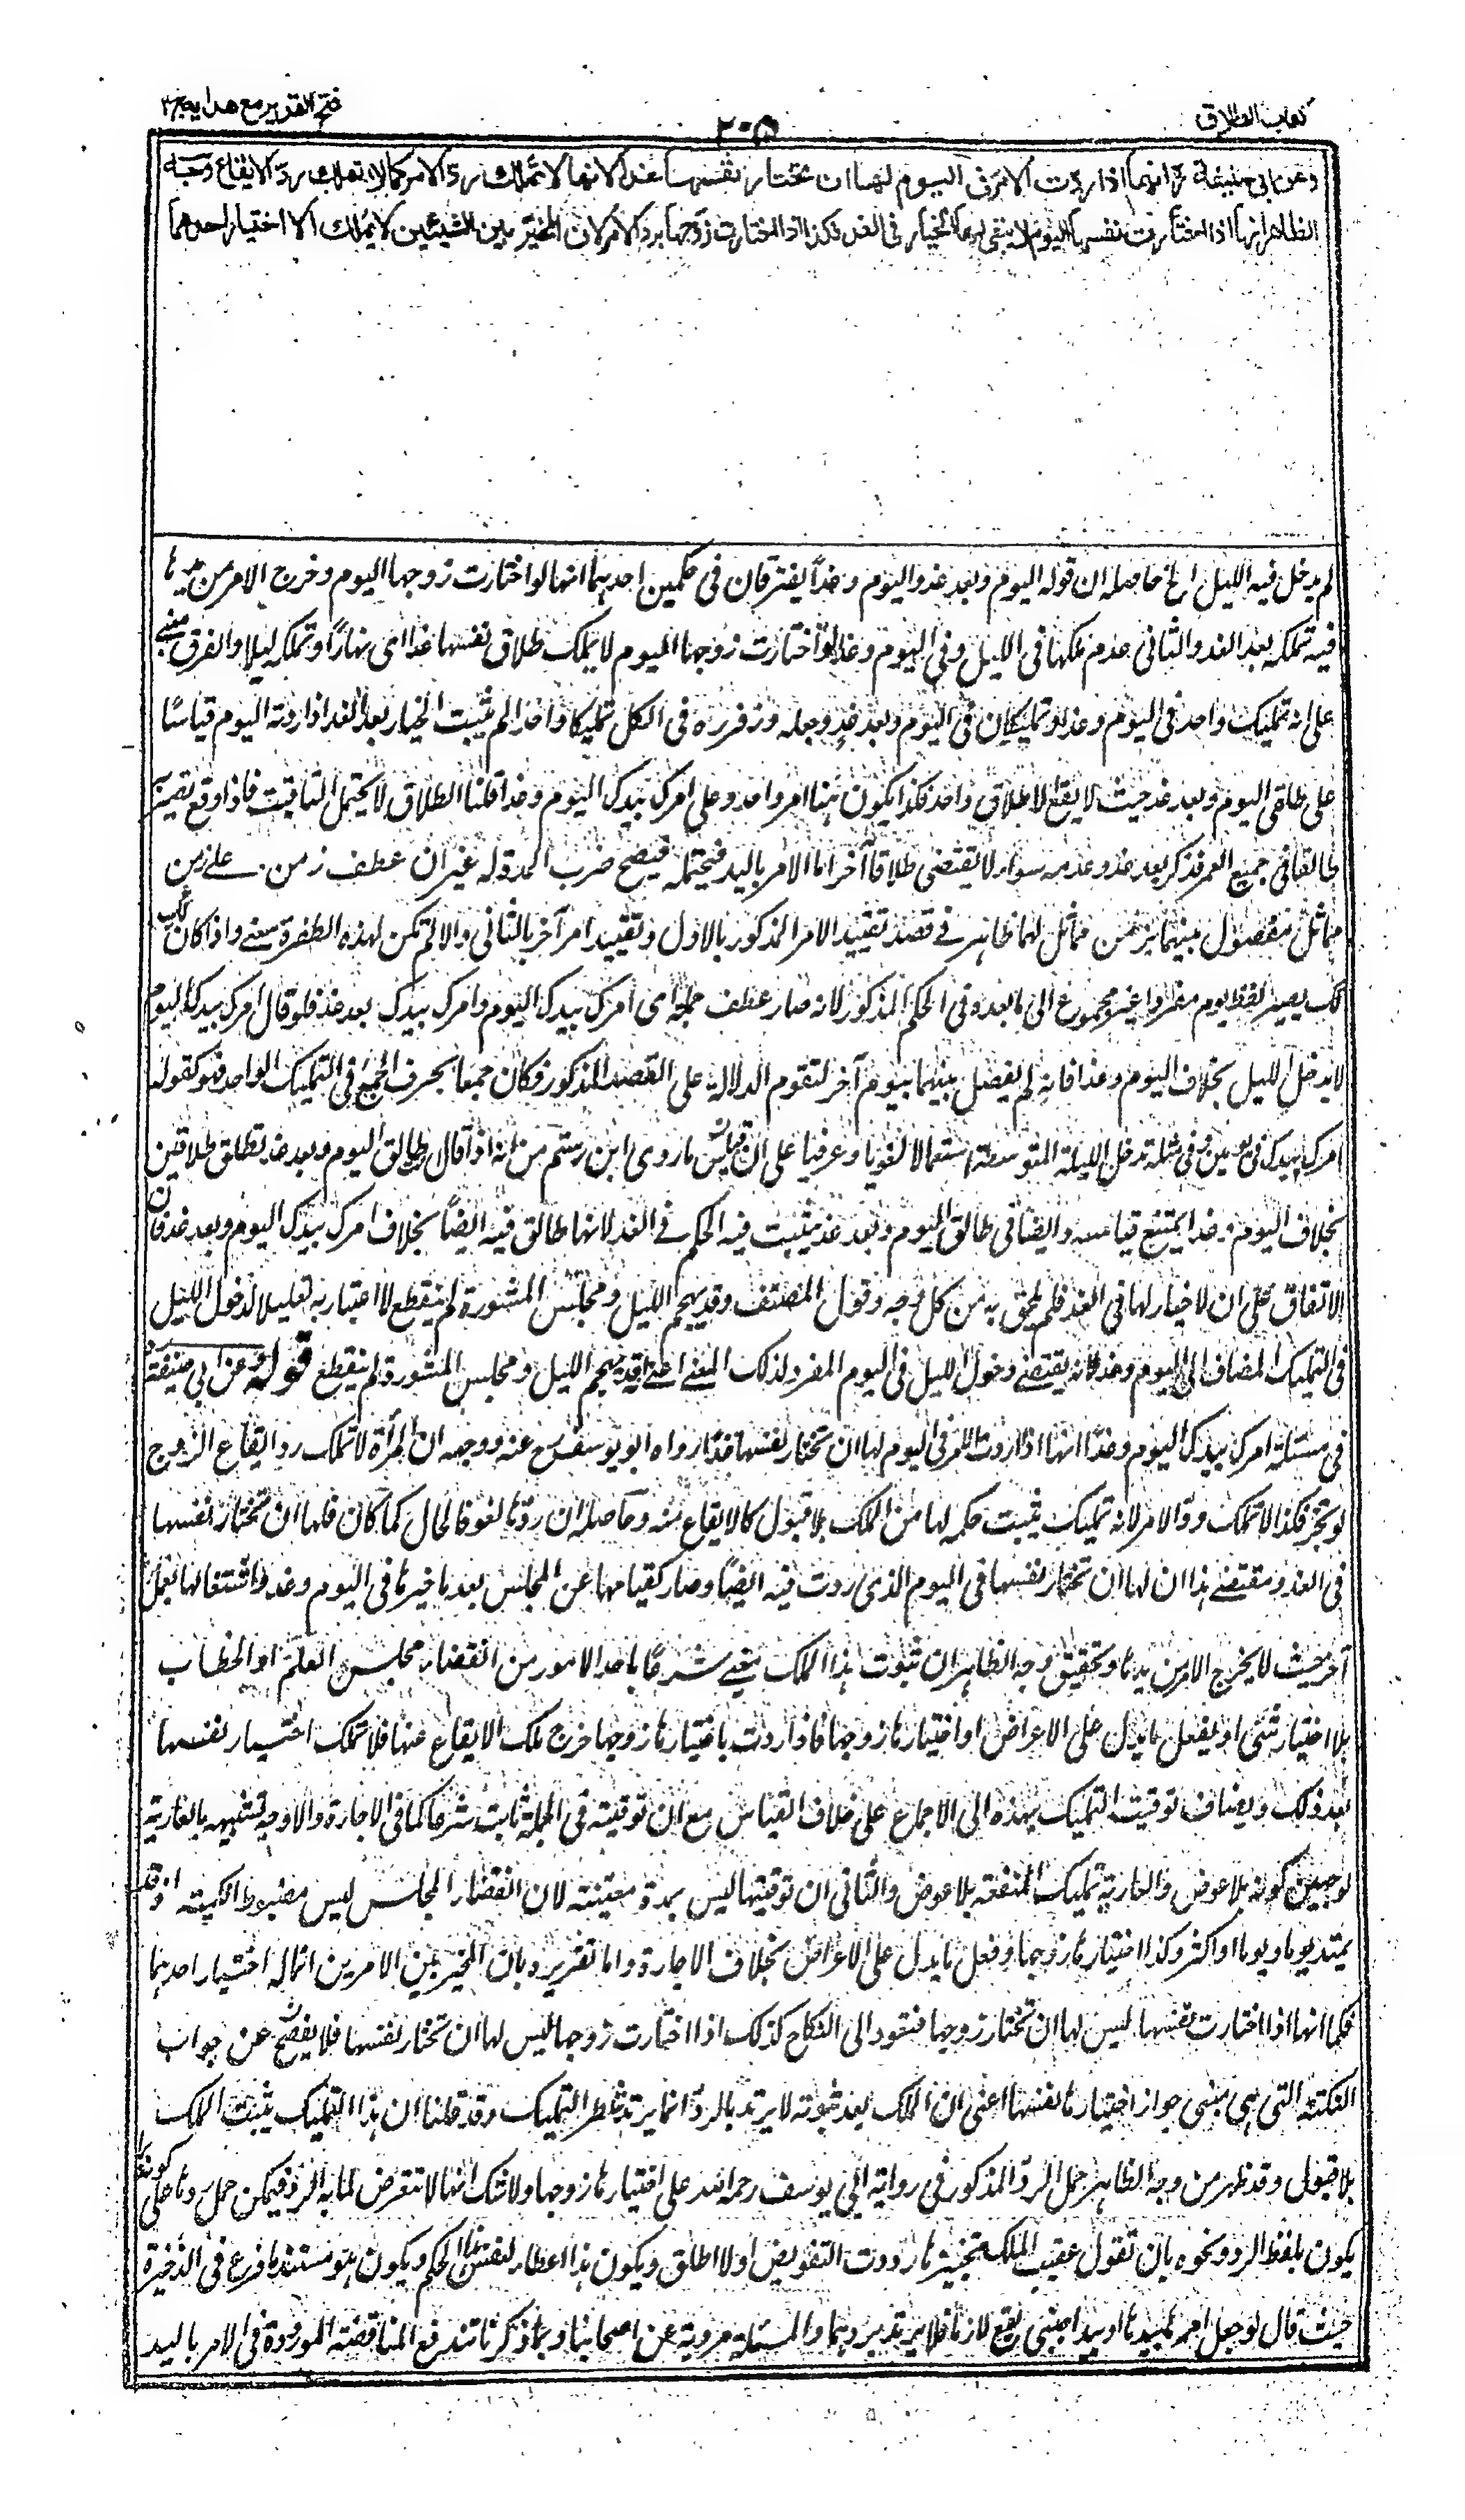 كتاب الطلاق
٢٠٥
فتح القدير مع هدايه ج٣
وعن ابى حنيفة رح انها اذا ردت الامر فى اليوم لها ان تختار نفسها غدا لانها لا تملك رد الامر كما لا تملك رد الايقاع وجه
الظاهر انها اذا اختارت نفسها اليوم لا يبقى لها الخيار فى الغد فكذا اذا اختارت زوجها برد الامر لان المخير بين الشيئين لا يملك الا اختيار احدهما
لم يدخل فيه الليل الخ حاصله ان قوله اليوم وبعد غد واليوم وغدا يفترقان فى حكمين احدهما انها لو اختارت زوجها اليوم وخرج الامر من يدها
فيه تملكه بعد الغد والثانى عدم ملكها فى الليل وفى اليوم وغدا لو اختارت زوجها اليوم لا يملك طلاق نفسها غدا اى نهارا وتملكه ليلا والفرق مبنى
على انه تمليك واحد فى اليوم وغد او تمليكان فى اليوم وبعد غد وجعله زفر ره فى الكل تمليكا واحدا لم يثبت الخيار بعد الغد اذا ردته اليوم قياسا
على طالق اليوم وبعد غد حيث لا يقع الا طلاق واحد فكذا يكون هنا امر واحد وعلى امرك بيدك اليوم وغدا قلنا الطلاق لا يحتمل التاقيت فاذا وقع تصير
طالقا فى جميع العمر فذكر بعد غد وعدمه سواء لا يقتضى طلاقا آخر اما الامر باليد فيحتمله فيصح ضرب المدة له غير ان عطف زمن على زمن
مماثل مفصول بينهما بزمن مماثل لهما ظاهر فى قصد تقييد الامر المذكور بالاول وتقييد امر آخر بالثانى والا لم تكن لهذه الطفرة معنى واذا كان كذلك
يصير لفظ يوم مفردا غير مجموع الى ما بعده فى الحكم المذكور لانه صار عطف جملة اى امرك بيدك اليوم وامرك بيدك بعد غد فلو قال امرك بيدك اليوم
لا يدخل الليل بخلاف اليوم وغدا فانه لم يفصل بينهما بيوم آخر لتقوم الدلالة على القصد المذكور فكان جمعا بحرف الجمع فى التمليك الواحد فهو كقوله
امرك بيدك فى يومين وفى مثله تدخل الليلة المتوسطة استعمالا لغويا وعرفيا على ان قياس ما روى ابن رستم من انه اذا قال طالق اليوم وبعد غد تطلق طلاقين
بخلاف اليوم وغدا يمتنع قياسه وايضا فى طالق اليوم وبعد غد يثبت فيه الحكم فى الغد لانها طالق فيه ايضا بخلاف امرك بيدك اليوم وبعد غد فان
الاتفاق على ان لا خيار لها فى الغد فلم يلحق به من كل وجه وقول المصنف وقد يهجم الليل ومجلس المشورة لم ينقطع لا اعتبار به تعليلا لدخول الليل
فى التمليك المضاف الى اليوم وغد لانه يقتضى دخول الليل فى اليوم المفرد لذلك المعنى اعنى انه قد يهجم الليل ومجلس المشورة لم ينقطع قوله وعن ابى حنيفة
فى مسئلة امرك بيدك اليوم وغدا انها اذا ردت الامر فى اليوم لها ان تختار نفسها غدا رواه ابو يوسف رح عنه ووجهه ان المرأة لا تملك رد ايقاع الزوج
لو نجز فكذا لا تملك رد الامر لانه تمليك يثبت حكمه لها من الملك بلا قبول كالايقاع منه وحاصله ان ردها لغو فالحال كما كان فلها ان تختار نفسها
فى الغد ومقتضى هذا ان لها ان تختار نفسها فى اليوم الذى ردت فيه ايضا وصار كقيامها عن المجلس بعد ما خيرها فى اليوم وغد واشتغالها بعمل
آخر حيث لا يخرج الامر من يدها وتحقيق وجه الظاهر ان ثبوت هذا الملك مغيى شرعا باحد الامور من انقضاء مجلس العلم او الخطاب
بلا اختيار شئ او بفعل ما يدل على الاعراض او اختيارها زوجها فاذا ردت باختيارها زوجها خرج ملك الايقاع عنها فلا تملك اختيار نفسها
بعد ذلك ويضاف توقيت التمليك بهذه الى الاجماع على خلاف القياس مع ان توقيته فى الجملة ثابت شرعا كما فى الاجارة والاوجه تشبيهه بالعارية
لوجهين كونه بلا عوض والعارية تمليك المنفعة بلا عوض والثانى ان توقيتها ليس بمدة معينة لان انقضاء المجلس ليس مضبوط الكمية اذ قد
يمتد يوما ويوما او اكثر وكذا اختيارها زوجها وفعل ما يدل على الاعراض بخلاف الاجارة واما تقريره بان المخير بين الامرين انما له اختيار احدهما
فكما انها اذا اختارت نفسها ليس لها ان تختار زوجها فتعود الى النكاح كذلك اذا اختارت زوجها ليس لها ان تختار نفسها فلا يفصح عن جواب
النكتة التى هى مبنى جواز اختيارها نفسها اعنى ان الملك بعد ثبوته لا يرتد بالرد انما يرتد شطر التمليك وقد قلنا ان هذا التمليك يثبت الملك
بلا قبول وقد ظهر من وجه الظاهر حمل الرد المذكور فى رواية ابى يوسف رحمه الله على اختيارها زوجها ولا شك انها لا تتعرض لما به الرد فيمكن حمل ردها على كونه
يكون بلفظ الرد ونحوه بان تقول عقيب الملك تخييرها رددت التفويض او لا اطلق ويكون هذا اعطاء لنفس الحكم ويكون هو مستند ما فرع فى الذخيرة
حيث قال لو جعل امرها بيدها او بيد اجنبى يقع لازما فلا يرتد بردهما والمسئلة مروية عن اصحابنا وبما ذكرنا تندفع المناقضة الموردة فى الامر باليد